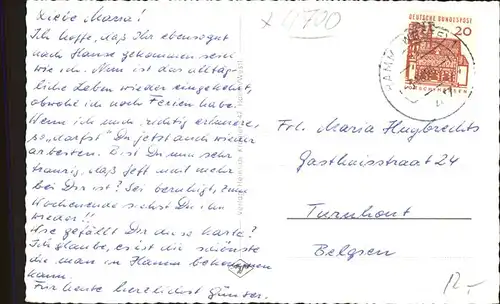 Liebe Maria!
Ich hoffe, daß Ihr ebensogut
nach Hause gekommen seid
wie ich. Nun ist das alltäg-
liche Leben wieder eingekehrt,
obwohl ich noch Ferien habe.
Wenn ich mich richtig erinnere,
so „darfst“ Du jetzt auch wieder
arbeiten. Bist Du nun sehr
traurig, daß Jeff nicht mehr
bei Dir ist? Sei beruhigt, zum
Wochenende siehst Du ihn
wieder!!
Wie gefällt Dir diese Karte?
Ich glaube, es ist die schönste
die man in Hamm bekommen
kann.
Für heute herzlichst Günter.
x 4700
DEUTSCHE BUNDESPOST
20
HAMM
Frl. Maria Huybrechts
Gasthuisstraat 24
Turnhout
Belgien
12,-